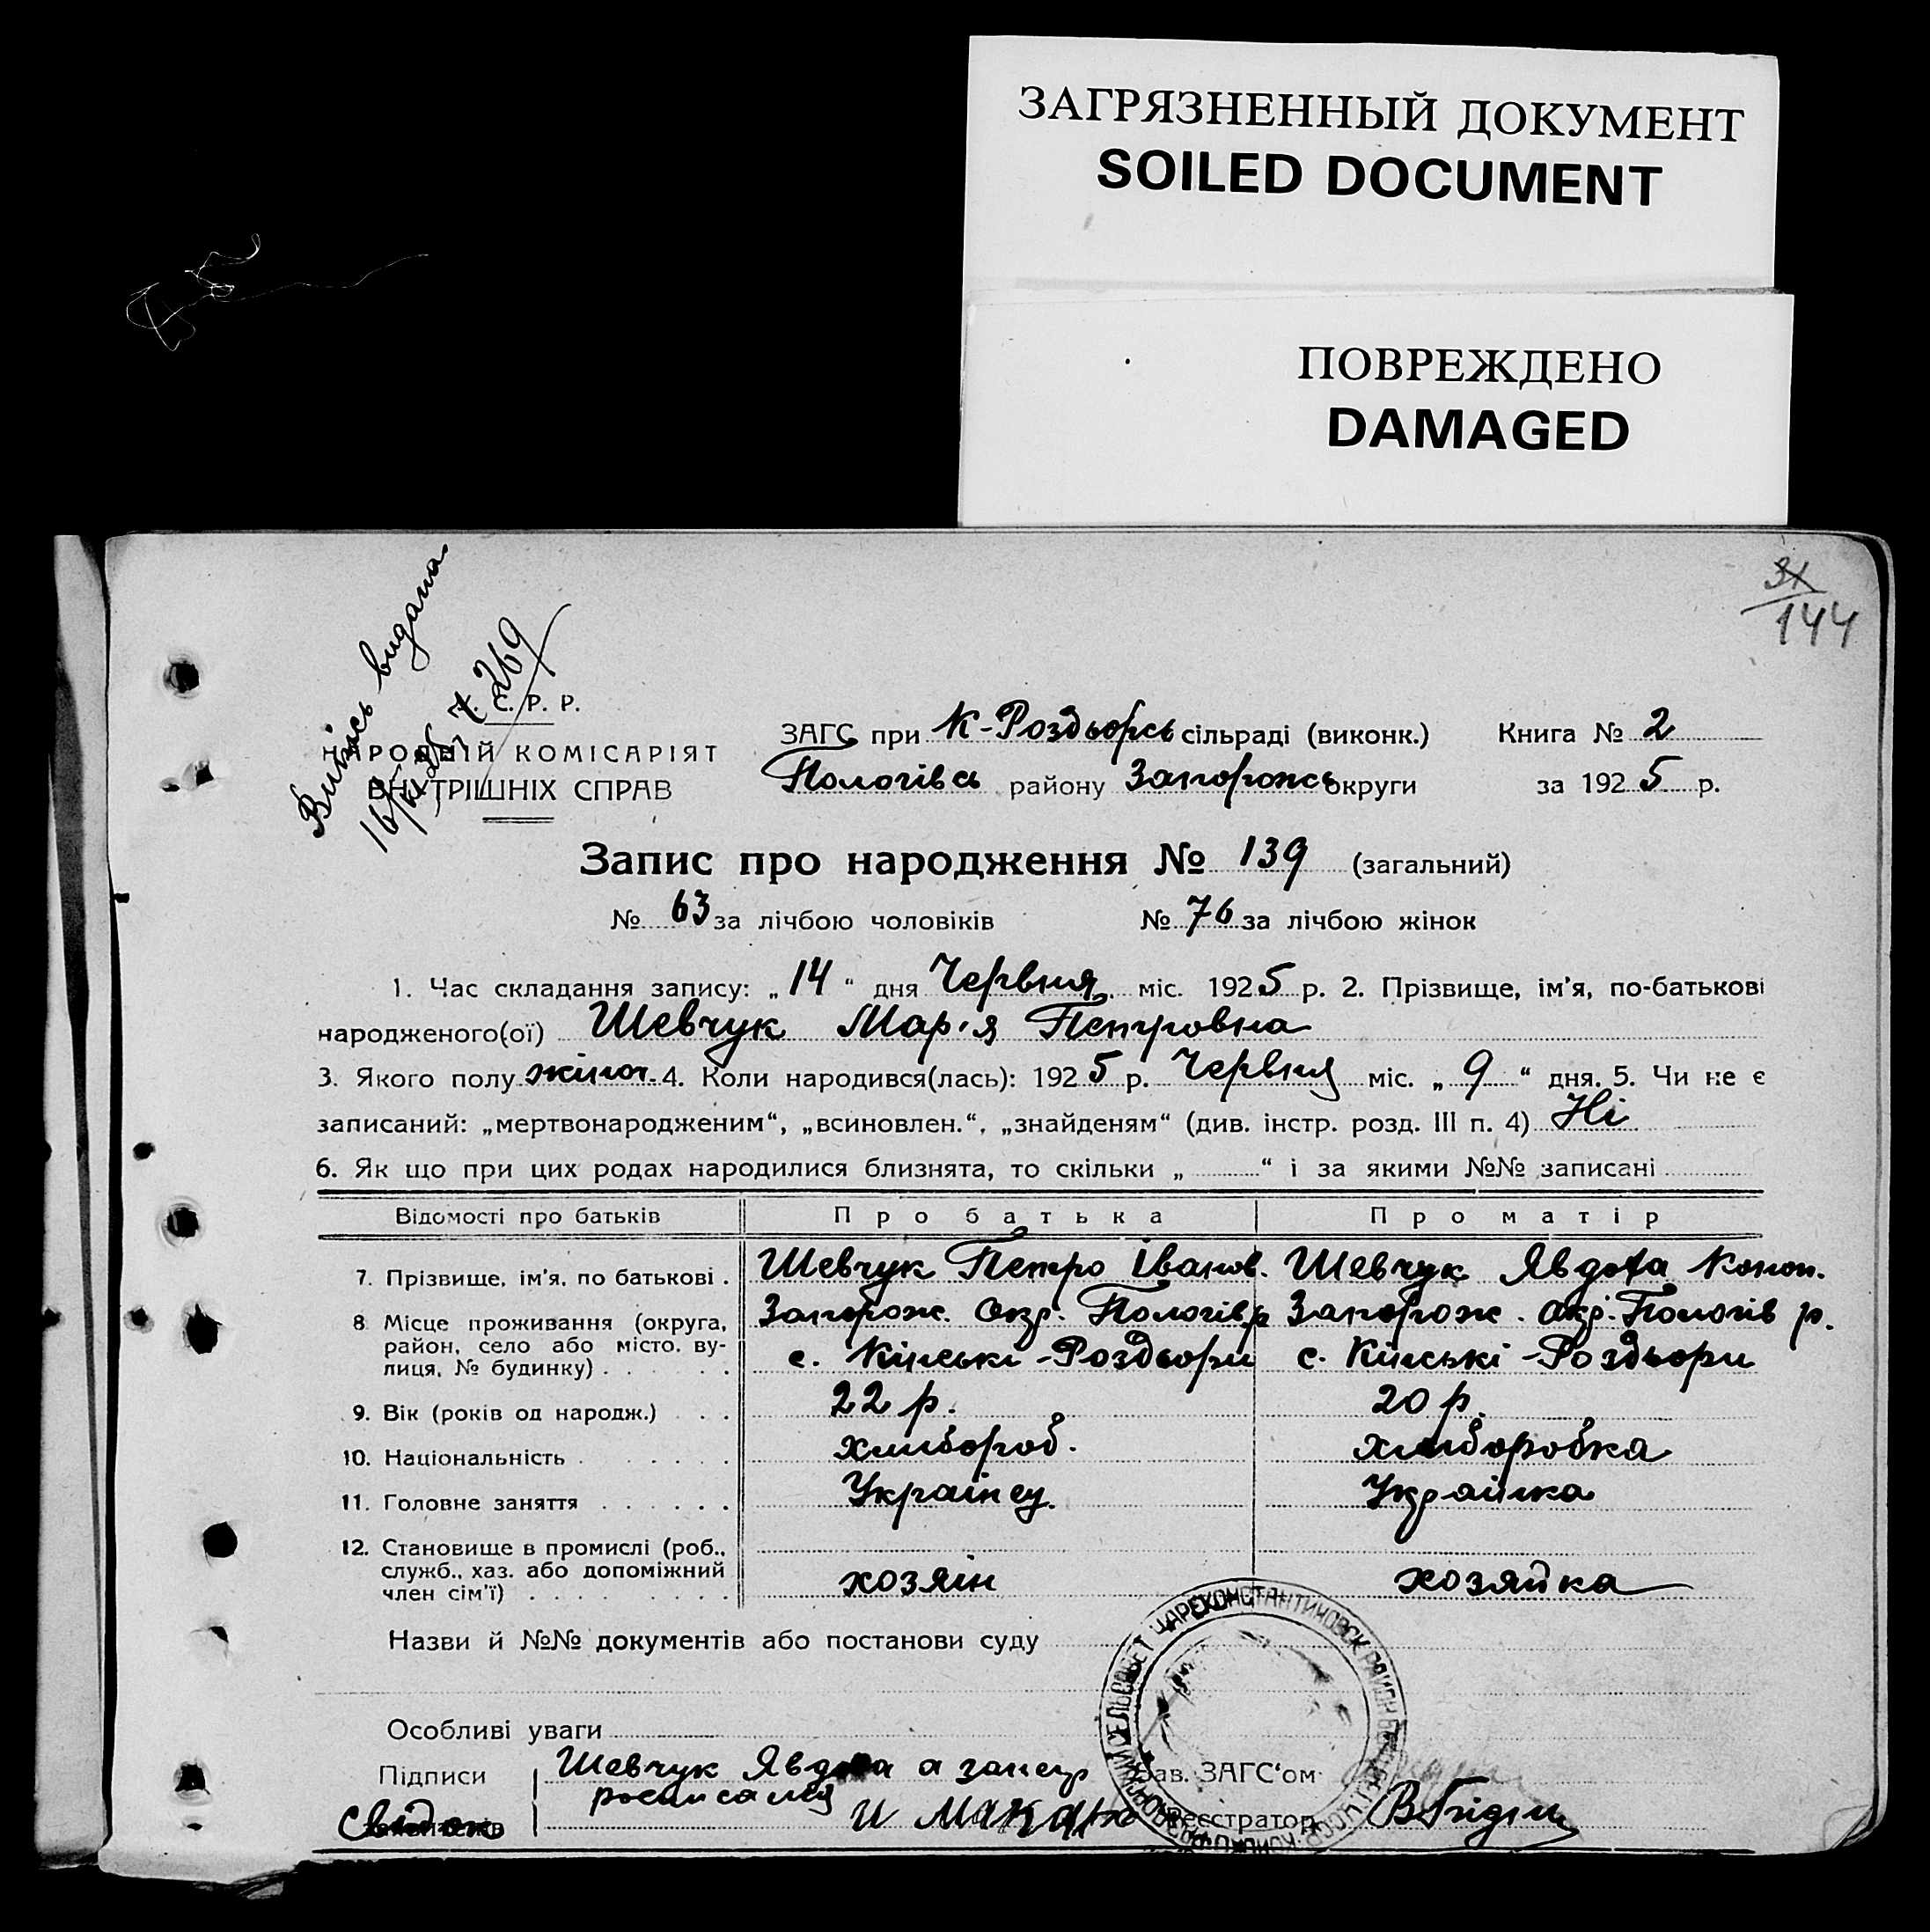 ЗАГРЯЗНЕННЫЙ ДОКУМЕНТ
SOILED DOCUMENT
ПОВРЕЖДЕНО
DAMAGED
31
144
Випись видана
269
С. Р. Р.
НАРОДНІЙ КОМІСАРІЯТ
ВНУТРІШНІХ СПРАВ
ЗАГС при К-Роздьорсь сільраді (виконк.) Книга № 2
Пологівсь району Запорожсь округи за 1925 р.
Запис про народження № 139 (загальний)
№ 63 за лічбою чоловіків № 76 за лічбою жінок
1. Час складання запису: „14“ дня Червня міс. 1925 р. 2. Прізвище, ім'я, по-батькові
народженого(ої) Шевчук Мар'я Петровна
3. Якого полу жіноч. 4. Коли народився(лась): 1925 р. Червня міс. „9“ дня. 5. Чи не є
записаний: „мертвонародженим“, „всиновлен.“, „знайденям“ (див. інстр. розд. III п. 4) Ні
6. Як що при цих родах народилися близнята, то скільки „ “ і за якими №№ записані
Відомості про батьків Про батька Про матір
7. Прізвище, ім'я, по батькові . Шевчук Петро Іванов. Шевчук Явдота Конон.
8 Місце проживання (округа, Запорож. Окр. Пологів р Запорож. окр. Пологів р.
район, село або місто, ву-
лиця, № будинку) . с. Кінські-Роздьори с. Кінські-Роздьори
9. Вік (років од народж.) 22 р. 20 р.
10. Національність . хлибороб. хлиборобка
11. Головне заняття Українец. Українка
12. Становище в промислі (роб.,
служб., хаз. або допоміжний
член сім'ї) хозяін хозяйка
Назви й №№ документів або постанови суду
СЕЛЬСОВЕТ ЦАРЕКОНСТАНТИНОВСК РАЙОН
Особливі уваги
Підписи Шевчук Явдота а занеір Зав. ЗАГС'ом
росписался
свидок И Макар Реєстратор